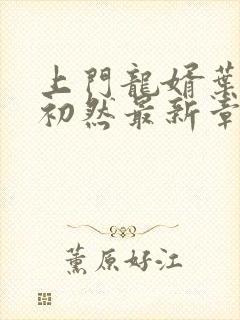 上門龍婿葉
初然最新章
薰原好江